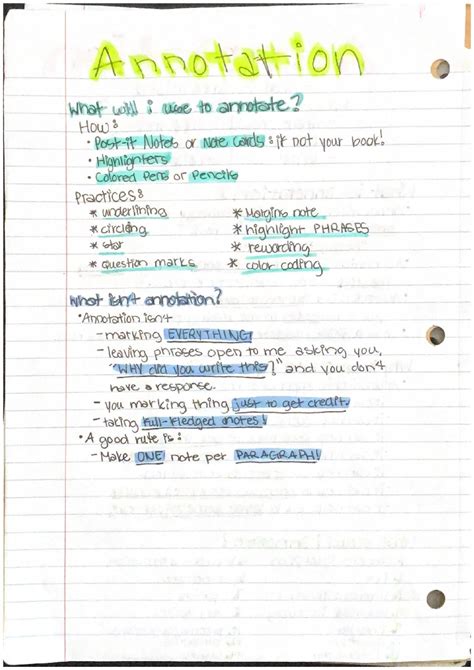 Annotation
What will i use to annotate?
How:
• Post-it Notes or Note cards : if not your book!
• Highlighters
• Colored Pens or Pencils
Practices:
* underlining * Margins note
* circling * highlight PHRASES
* star * rewording
* question marks * color coding
What isn't annotation?
• Annotation isn't
- marking EVERYTHING!
- leaving phrases open to me asking you,
"WHY did you write this?" and you don't
have a response.
- you marking thing just to get credit.
- taking full-fledged notes!
• A good rule is:
- Make ONE note per PARAGRAPH!